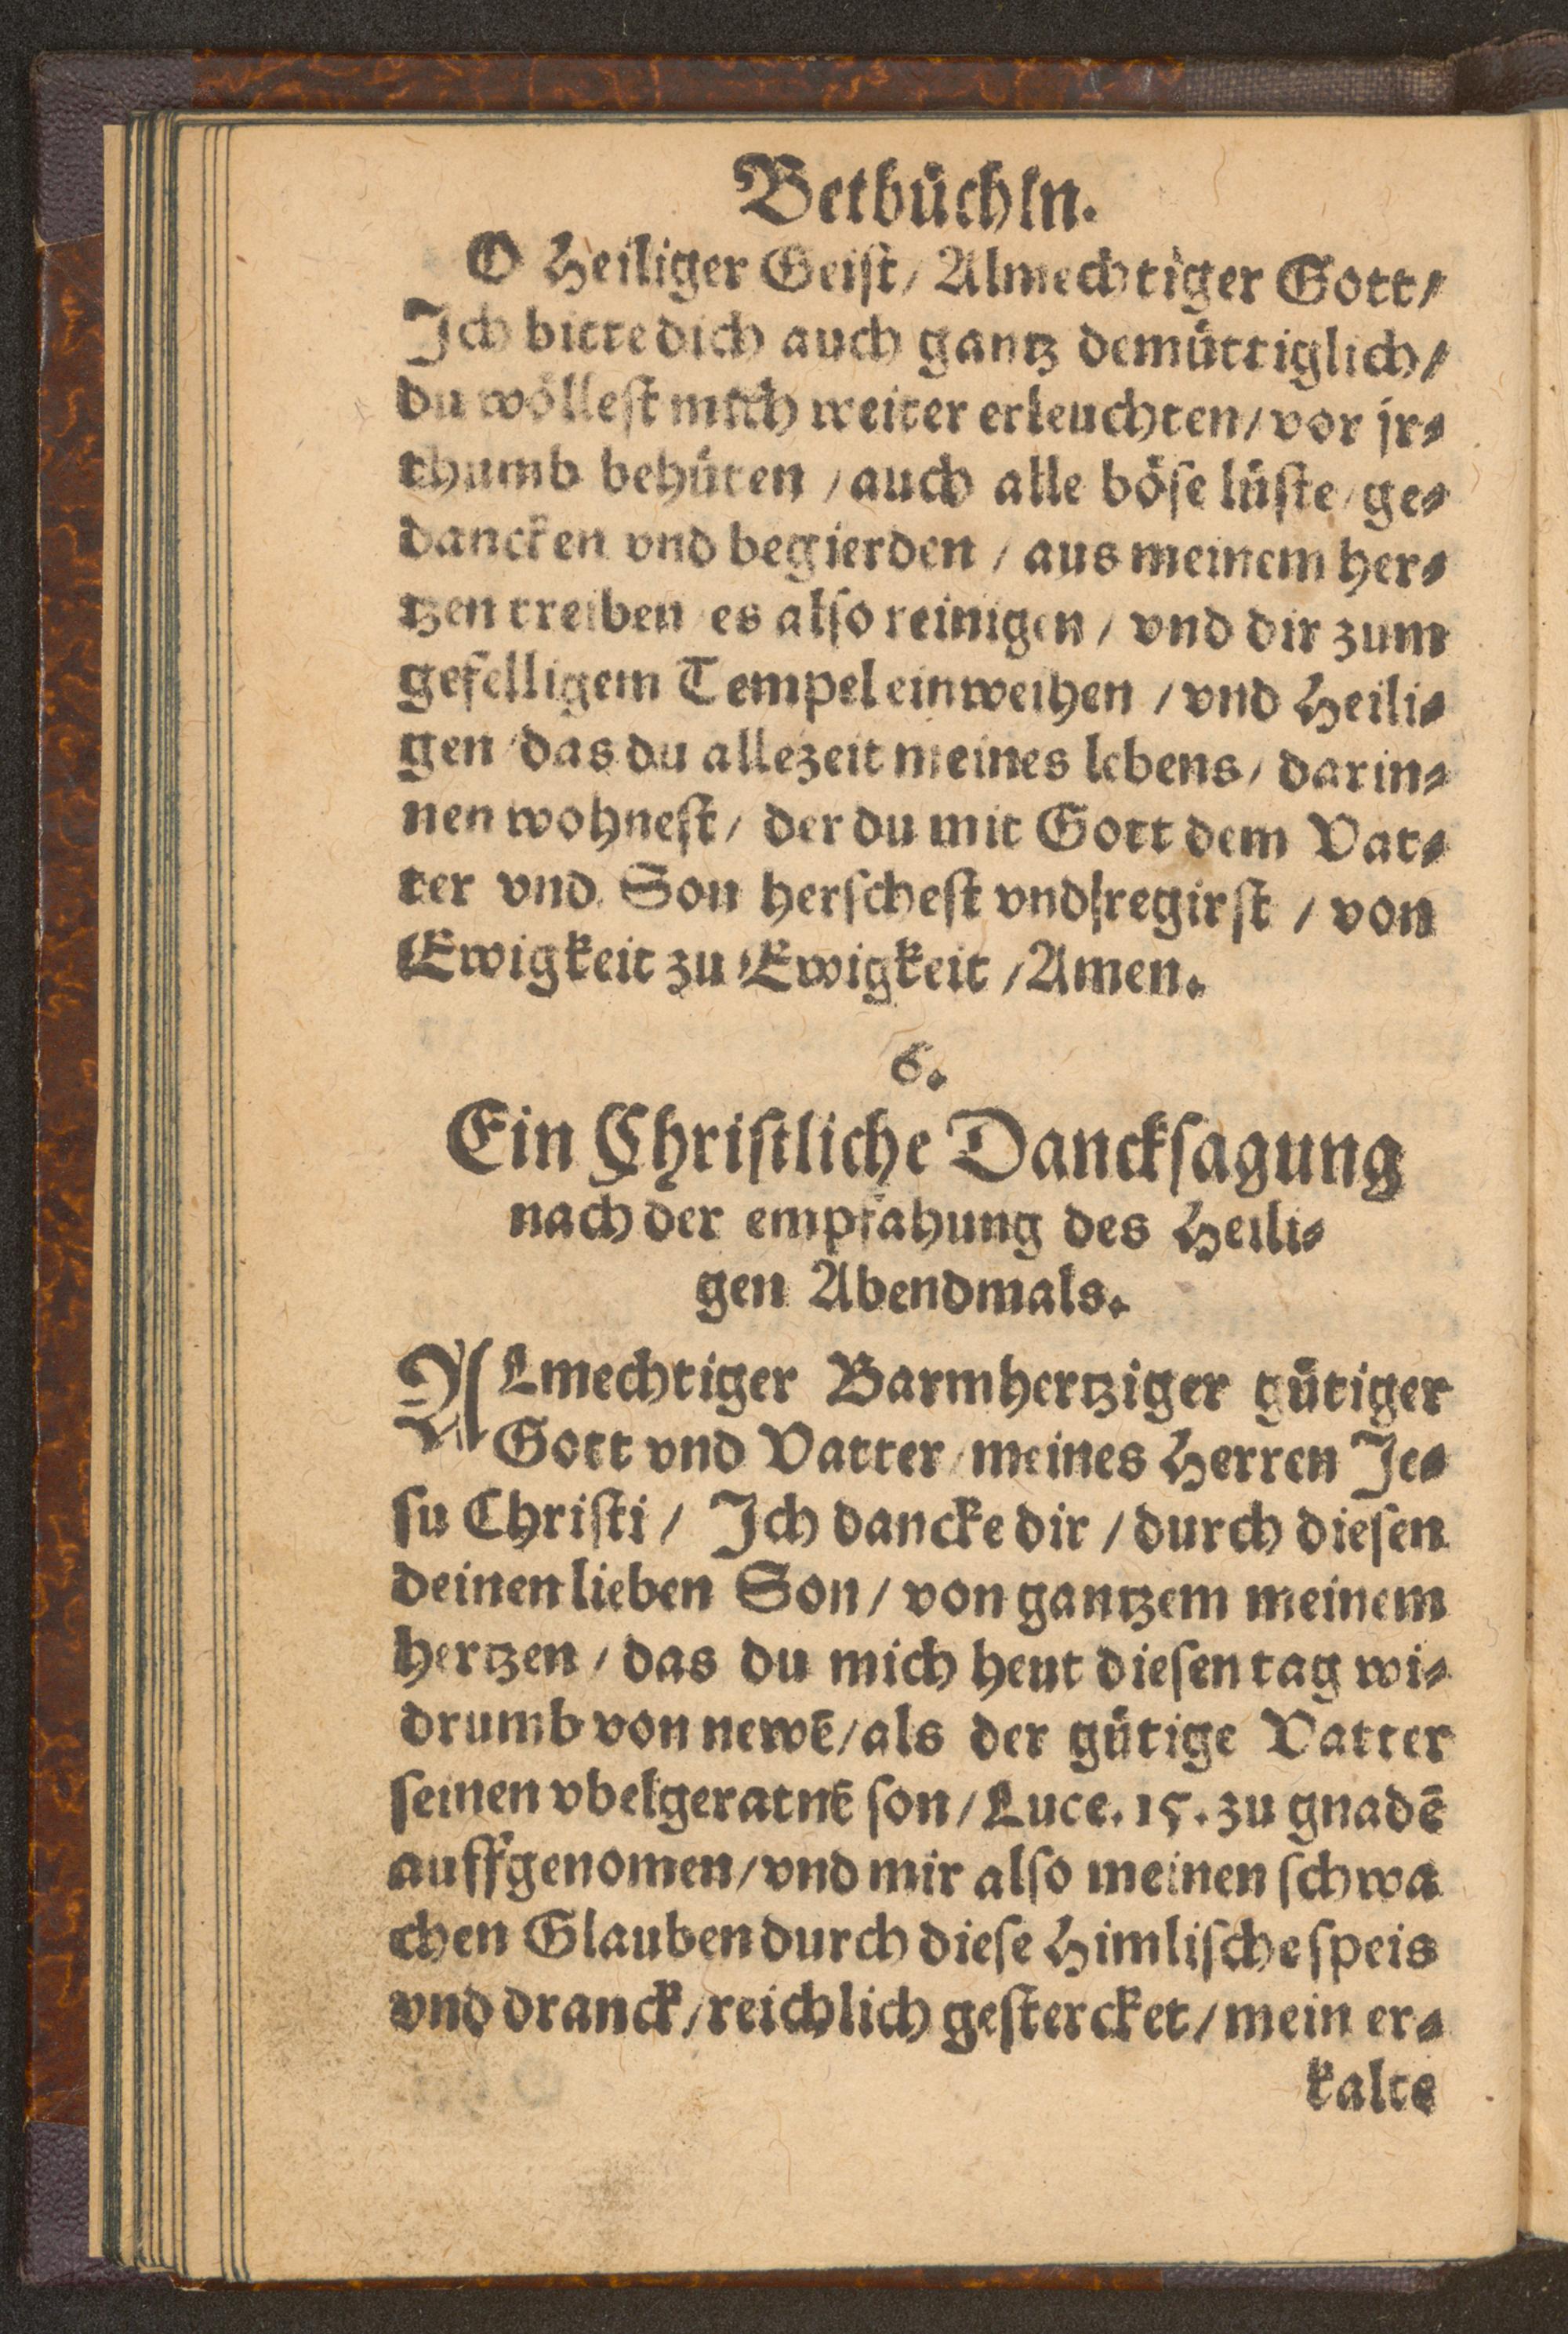 Betbüchln.
O Heiliger Geiſt / Almechtiger Gott /
Ich bitte dich auch gantz demüttiglich /
du wöllest mich weiter erleuchten / vor jr⸗
thumb behüten / auch alle böſe lüſte / ge⸗
dancken vnd begierden / aus meinem her⸗
tzen treiben / es alſo reinigen / vnd dir zum
gefelligem Tempel einweihen / vnd Heili⸗
gen / das du allezeit meines lebens / darin⸗
nen wohneſt / der du mit Gott dem Vat⸗
ter vnd Son herſcheſt vnd regirſt / von
Ewigkeit zu Ewigkeit / Amen.
6.
Ein Chriſtliche Danckſagung
nach der empfahung des Heili⸗
gen Abendmals.
ALmechtiger Barmhertziger gütiger
Gott vnd Vatter / meines Herren Je⸗
ſu Chriſti / Ich dancke dir / durch dieſen
deinen lieben Son / von gantzem meinem
hertzen / das du mich heut dieſen tag wi⸗
drumb von newē / als der gütige Vatter
ſeinen vbelgeratnē ſon / Luce. 15. zu gnadē
auffgenomen / vnd mir alſo meinen ſchwa
chen Glauben durch dieſe Himliſche ſpeis
vnd dranck / reichlich geſtercket / mein er⸗
kalte